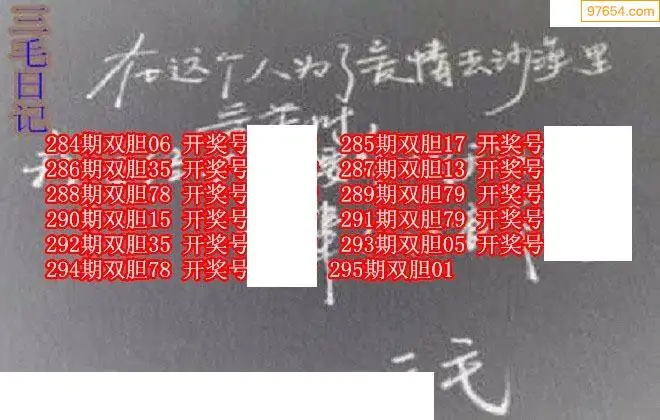 97654.com
三毛日记
在这个人为了爱情去沙漠里
284期双胆06 开奖号 285期双胆17 开奖号
286期双胆35 开奖号 287期双胆13 开奖号
288期双胆78 开奖号 289期双胆79 开奖号
290期双胆15 开奖号 291期双胆79 开奖号
292期双胆35 开奖号 293期双胆05 开奖号
294期双胆78 开奖号 295期双胆01
三毛